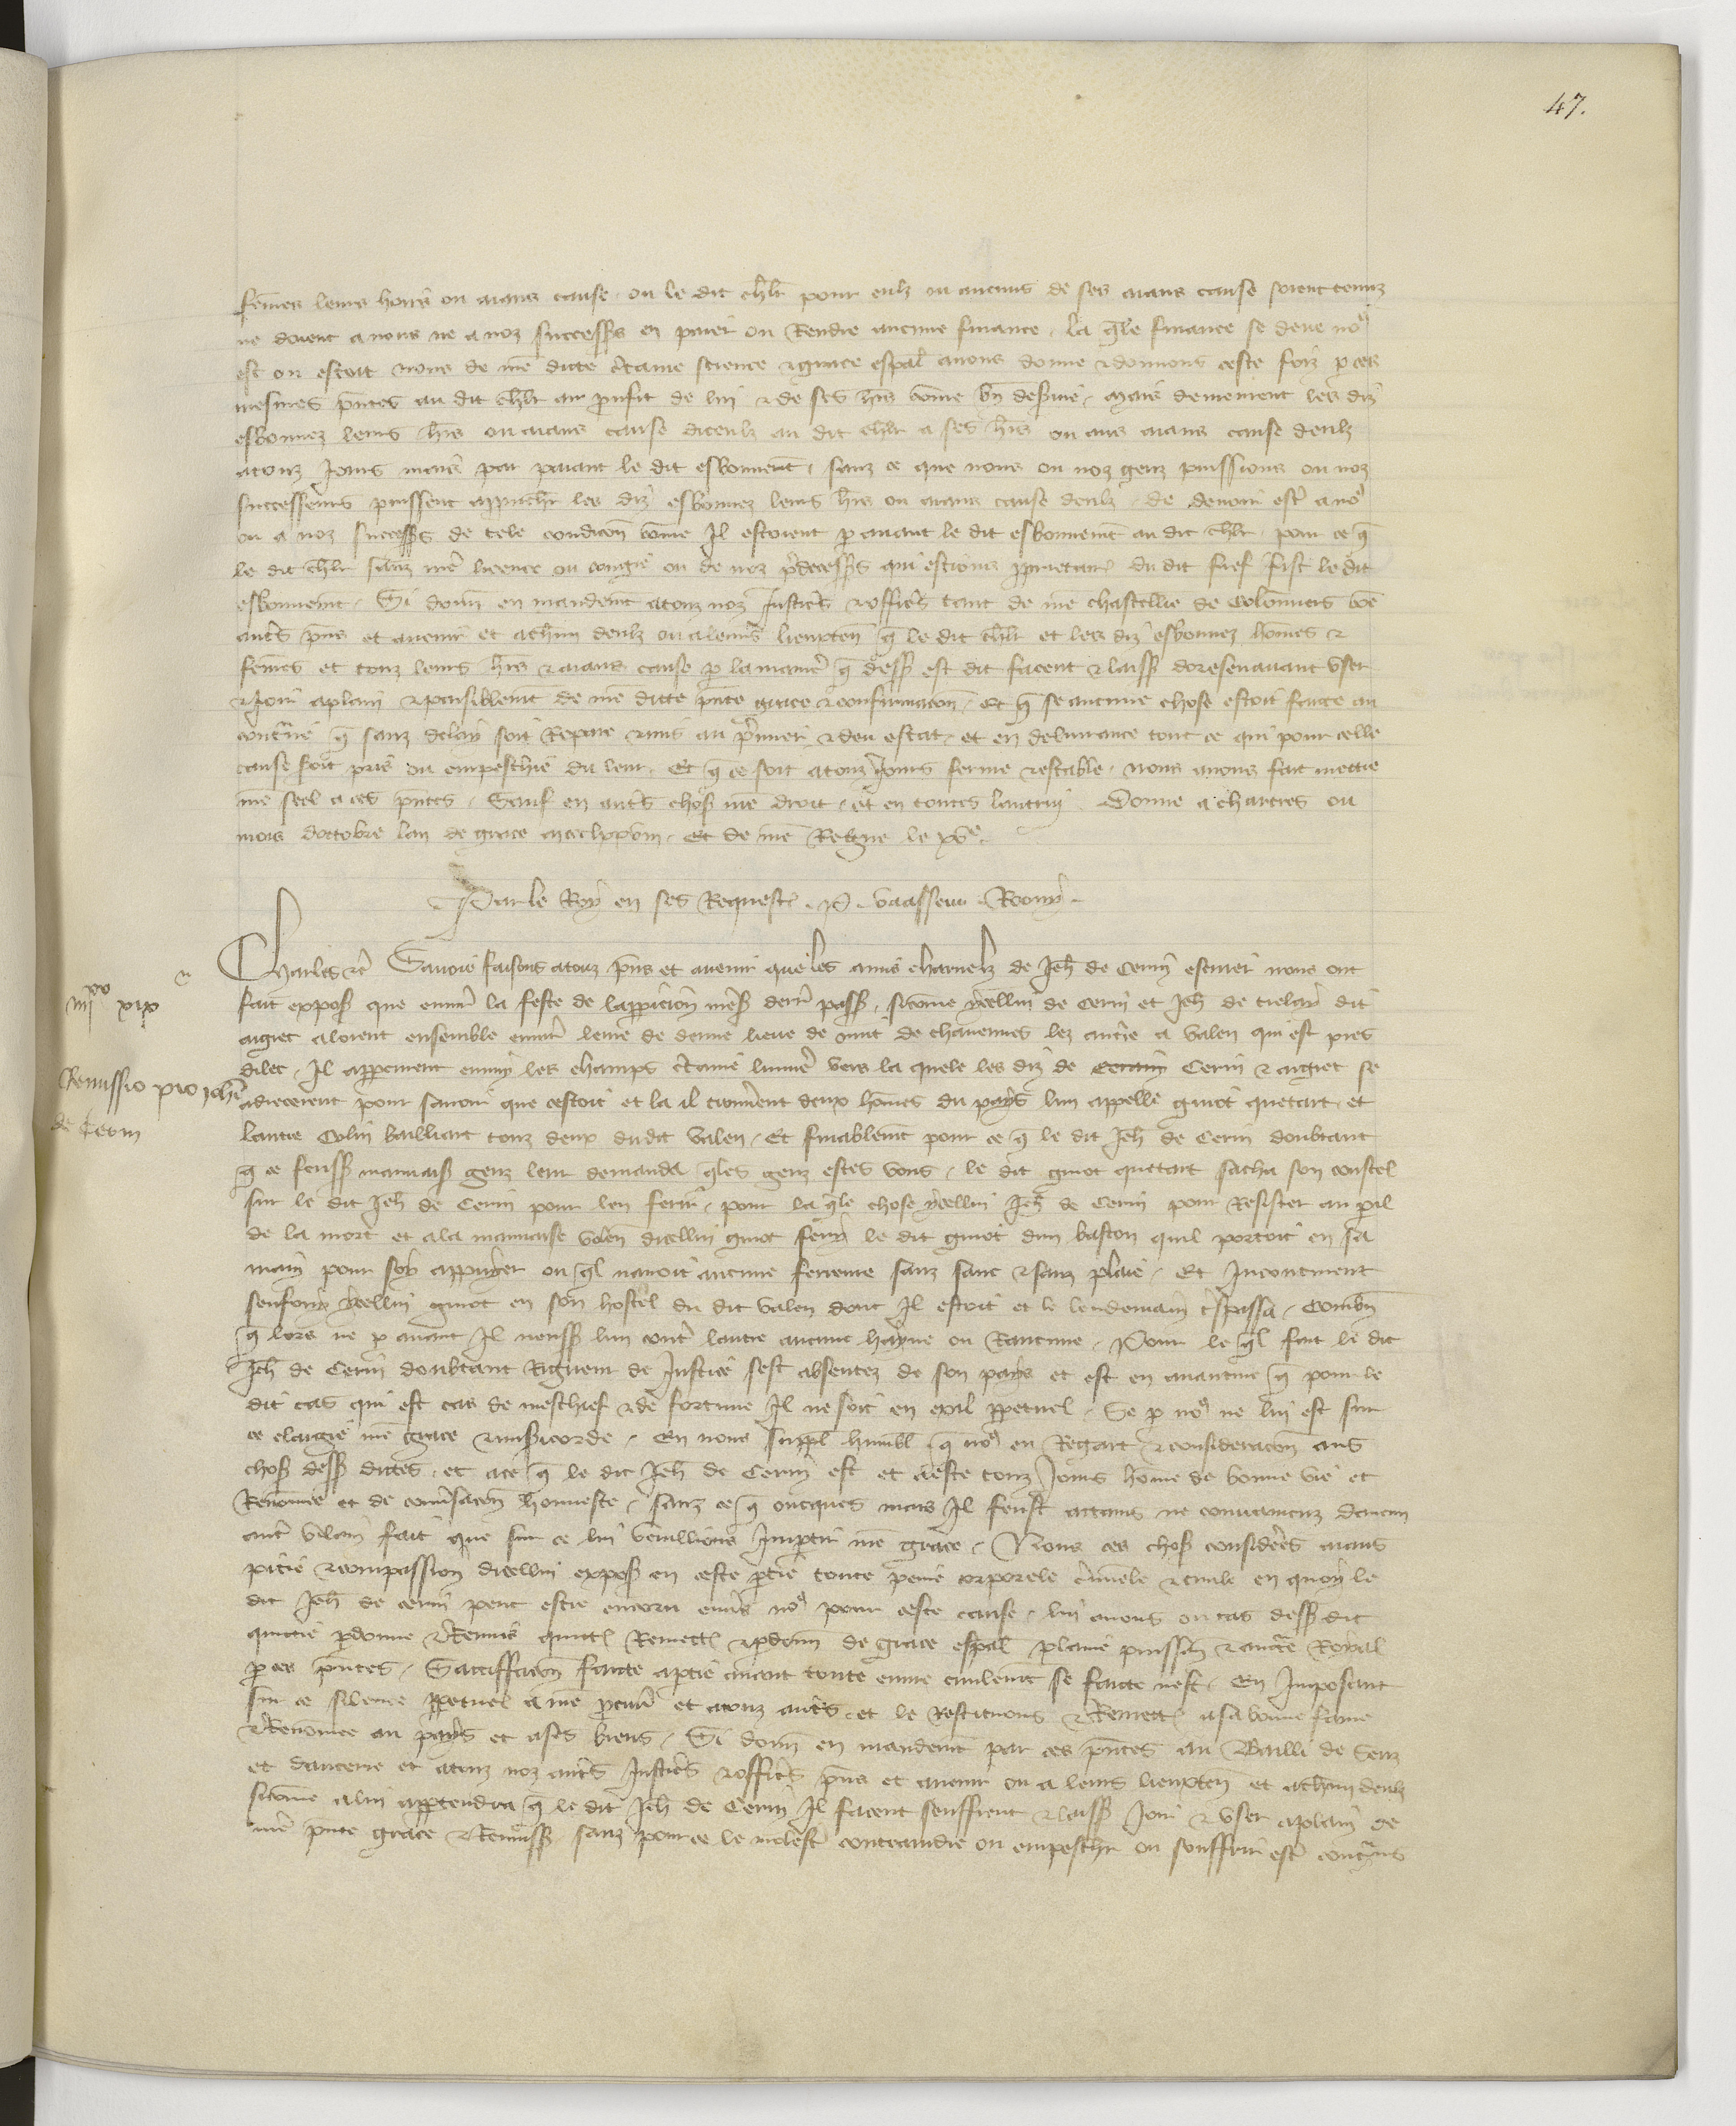 47.
fẽmes leurs hoirs ou aians cause ou le dit chlr pour eulx ou aucuns de ses aians cause soient tenuz
ne doient a nous ne a noz successrs en paier ou Rendre aucune finance . la qle finance se deue no9
est ou estoit nous de nre dicte ctaine science & grace espal avons donne & donnons ceste foiz p ces
mesmes pntes au dit chlr au prufit de lui & de ses hrs cõme bñ desservie . mais demeurent les diz
esbonnez leurs hrs ou aians cause diceulx au dit chlr a ses hrs ou aus aians cause deulx
atouz Jours mais par paiant le dit esbonnemt . sanz ce que nous ou noz genz puissions ou noz
successeurs puissent approuchr les diz esbonnez leurs hrs ou aians cause deulx . de devoir estr a no9
ou a noz successrs de tele condicõn cõme Il estoient p avant le dit esbonnemt au dit chlr . pour ce q
le dit chlr sanz nre licence ou congie ou de noz pdecessrs qui estions du dit fief fist le dit
esbonnemt . Si donn en mandemt atouz noz Justicrs & officrs tant de nre chastellie de Colõmiers cõe
autrs pñs et avenir et achun deulx ou a leurs lieuxten q le dit chlr et les diz esbonnez hõmes &
fẽmes et touz leurs hrs & aians cause p la manier q dess est dit facent & laissent doresenavant user
& Joir aplain & paisiblemt de nre dicte pnte grace & confirmacõn . Et q se aucune chose estoit faicte au
contraire q sanz delay soit Repare & mis au pmier & deu estat . et en delivrance tout ce qui pour celle
cause soit pris ou empeschie du leur . Et q ce soit atouz Jours ferme & estable . nous avons fait mettre
nre seel a ces pntes . Sauf en autrs choses nre droit . et en toutes lautruy . Donne a chartres ou
mois doctobre lan de grace mccclxxviii . Et de nre Regne le xve .
Par le Roy en ses Requestes . P . vaasseur . Roony .
Charles &c Savoir faisons atouz pñs et avenir que les amis charnelz de Jeh de Cerin escuier nous ont
fait exposer que environ la feste de lapparicion nre sr derr passe . sicõme ycellui de Cerin et Jeh de dit
aigret aloient ensemble environ leure de demie lieue de nuit de chavennes lez a valen qui est pres
dilec . Il apperceurent enmy les champs ctaine lumiere vers la quele les diz de Cerin & aigret se
adrecerent pour savoir que cestoit et la il trouverent deux hõmes du pays lun appelle guiot quetart et
lautre Colin bailliart touz deux dudit valen . Et finablemt pour ce q le dit Jeh de Cerin doubtant
q ce feussent mauvaises genz leur demanda qles genz estes vous . le dit guiot quetart sacha son coustel
sur le dit Jeh de Cerin pour len ferir . pour la qle chose ycellui Jeh de Cerin pour Resister au pil
de la mort et ala mauvaise volen dicellui guiot fery le dit guiot dun baston quil portoit en sa
main pour soy appuyer ou ql navoit aucune ferreure sanz sanc & sanz plaie . Et Incontinent
senfouy ycellui guiot en son hostel du dit valen dont Il estoit et le lendemain trespassa . Combn
q lors ne p avant Il neussent lun contre lautre aucune hayne ou Rancune . Pour le ql fait le dit
Jeh de Cerin doubtant Rigueur de Justice sest absentez de son pays et est en aventure q pour le
dit cas qui est cas de meschief & de fortune Il ne soit en exil ppetuel . Se p no9 ne lui est sur
ce elargie nre grace & misericorde . En nous suppl humbl q no9 en Regart & consideracõn aus
choses dess dictes . et ace q le dit Jeh de Cerin est et a este touz Jours hõme de bonne vie et
Renõmee et de conversacõn honneste . sanz ce q oncques mais Il feust actains ne convaincuz daucun
autr vilain fait que sur ce lui veuillions Impartir nre grace . Nous ces choses considerees aians
pitie & compassion dicellui exposant en ceste ptie toute peine corporele criminele & civile en quoy le
dit Jeh de cerin peut estre encoru envers no9 pour ceste cause . lui avons ou cas dess dit
quictie pdonne & Remis quictons Remectons & pdonn de grace espal plaine puissance & auctorite Royal
p ces pntes . Satiffacõn faicte aptie avant toute euvre civilemt se faicte nest . En Imposant
sur ce silence ppetuel a nre pcur et atouz autrs . et le Restituons & Remectons a sa bonne fame
& Renõmee au pays et ases biens . Si donn en mandemt par ces pntes au Bailli de Senz
et daucerre et atouz noz autrs Justicrs & officrs pñs et avenir ou a leurs lieuxten et achun deulx
sicõme alui appartendra q le dit Jeh de Cerin Il facent seuffrent & laissent Joir & user aplain de
nre pnte grace & Remission sanz pour ce le molester contraindre ou empeschr ou souffrir estr contrains
iiiixx xix
Remissio pro Johe
de Cerin